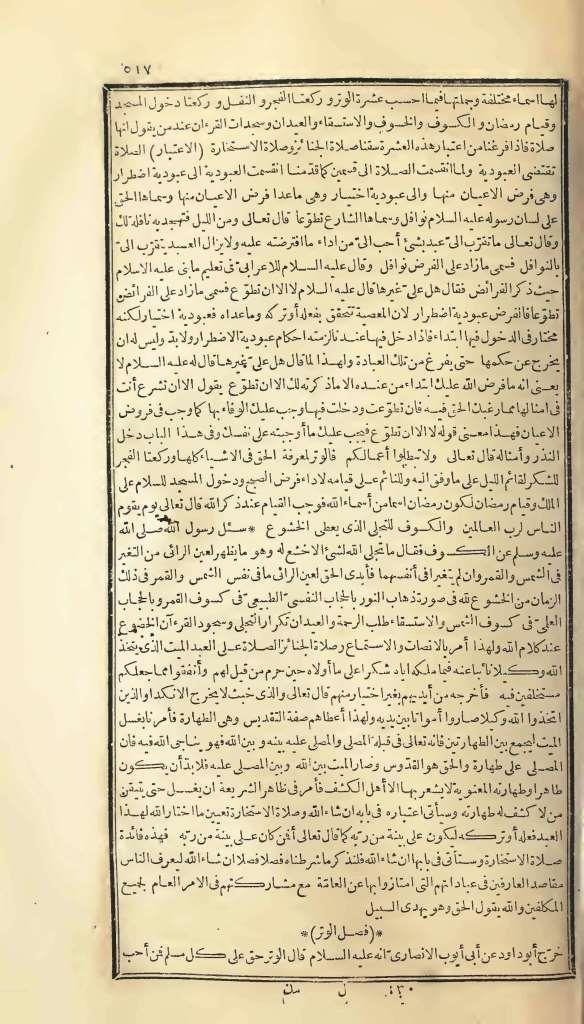 ٥١٧
لها اسماء مختلفة وجملتها فيما احسب عشرة الوتر وركعتا الفجر والنفل وركعتا دخول المسجد
وقيام رمضان والكسوف والخسوف والاستسقاء والعيدان وسجدات القرءان عند من يقول انها
صلاة فاذا فرغنا من اعتبار هذه العشرة سقنا صلاة الجنائز وصلاة الاستخارة (الاعتبار) الصلاة
تقتضى العبودية ولما انقسمت الصلاة الى قسمين كما قدّمنا انقسمت العبودية الى عبودية اضطرار
وهى فرض الاعيان منها والى عبودية اختيار وهى ماعدا فرض الاعيان منها وسماها الحق
على لسان رسوله عليه السلام نوافل وسماها الشارع تطوّعا قال تعالى ومن الليل فتهجد به نافلة لك
وقال تعالى ما تقرّب الىّ عبد بشئ أحب الىّ من اداء ما افترضته عليه ولا يزال العبد يتقرّب الىّ
بالنوافل فسمى ما زاد على الفرض نوافل وقال عليه السلام للاعرابىّ فى تعليم ما بنى عليه الاسلام
حيث ذكر الفرائض فقال هل علىّ غيرها قال عليه السلام لا الا ان تطوّع فسمى ما زاد على الفرائض
تطوّعا فالفرض عبودية اضطرار لان المعصية تتحقق بفعله أو تركه وما عداه فعبودية اختيار لكنه
مختار فى الدخول فيها ابتداء فاذا دخل فيها عندنا لزمته احكام عبودية الاضطرار ولا بدّ وليس له ان
يخرج عن حكمها حتى يفرغ من تلك العبادة ولهذا لما قال هل علىّ غيرها قال له عليه السلام لا
يعنى انه ما فرض الله عليك ابتداء من عنده الا ما ذكرته لك الا ان تطوّع يقول الا ان تشرع أنت
فى امثالها مما رغبك الحق فيه فان تطوّعت ودخلت فيها وجب عليك الوفاء بها كما وجب فى فروض
الاعيان فهذا معنى قوله لا الا ان تطوّع فيجب عليك ما أوجبته على نفسك وفى هذا الباب دخل
النذر وأمثاله قال تعالى ولا تبطلوا أعمالكم فالوتر لمعرفة الحق فى الاشياء كلها وركعتا الفجر
للشكر لقائم الليل على ما وفق اليه وللنائم على قيامه لاداء فرض الصبح ودخول المسجد للسلام على
الملك وقيام رمضان لكون رمضان اسما من أسماء الله فوجب القيام عند ذكر الله قال تعالى يوم يقوم
الناس لرب العالمين والكسوف للتجلى الذى يعطى الخشوع * سئل رسول الله صلى الله
عليه وسلم عن الكسوف فقال ما تجلى الله لشئ الا خشع له وهو ما يظهر لعين الرائى من التغير
فى الشمس والقمر وان لم يتغيرا فى أنفسهما فأبدى الحق لعين الرائى ما فى نفس الشمس والقمر فى ذلك
الزمان من الخشوع لله فى صورة ذهاب النور بالحجاب النفسىّ الطبيعىّ فى كسوف القمر وبالحجاب
العلمىّ فى كسوف الشمس والاستسقاء طلب الرحمة والعيدان تكرار التجلى وسجود القرءآن الخضوع
عند كلام الله ولهذا أمر بالانصات والاستماع وصلاة الجنائز الصلاة على العبد الميت الذى يتخذ
الله وكيلا نائبا عنه فيما ملكه اياه شكرا على ما أولاه حين حرم من قيل لهم وأنفقوا مما جعلكم
مستخلفين فيه فأخرجه من أيديهم بغير اختيار منهم قال تعالى والذى خبث لا يخرج الا نكدا والذين
اتخذوا الله وكيلا صاروا أمواتا بين يديه ولهذا أعطاهم صفة التقديس وهى الطهارة فأمرنا بغسل
الميت ليجمع بين الطهارتين فانه تعالى فى قبلة المصلى والمصلى عليه بينه وبين الله فهو يناجى الله فيه فان
المصلى على طهارة والحق هو القدّوس وصار الميت بين الله وبين المصلى عليه فلا بدّ أن يكون
طاهرا وطهارته المعنوية لا يشعر بها الا أهل الكشف فأمر فى ظاهر الشريعة ان يغسل حتى يتيقن
من لا كشف له طهارته وسيأتى اعتباره فى بابه ان شاء الله وصلاة الاستخارة تعيين ما اختار الله لهذا
العبد فعله أو تركه ليكون على بينة من ربه كما قال تعالى أفمن كان على بينة من ربه فهذه فائدة
صلاة الاستخارة وستأتى فى بابها ان شاء الله فلنذكر ما شرطناه فصلا فصلا ان شاء الله ليعرف الناس
مقاصد العارفين فى عباداتهم التى امتازوا بها عن العامّة مع مشاركتهم فى الامر العام لجميع
المكلفين والله يقول الحق وهو يهدى السبيل
*(فصل الوتر)*
خرّج أبو داود عن أبى أيوب الانصارىّ انه عليه السلام قال الوتر حق على كل مسلم فمن أحب
١٣٠ ل مك